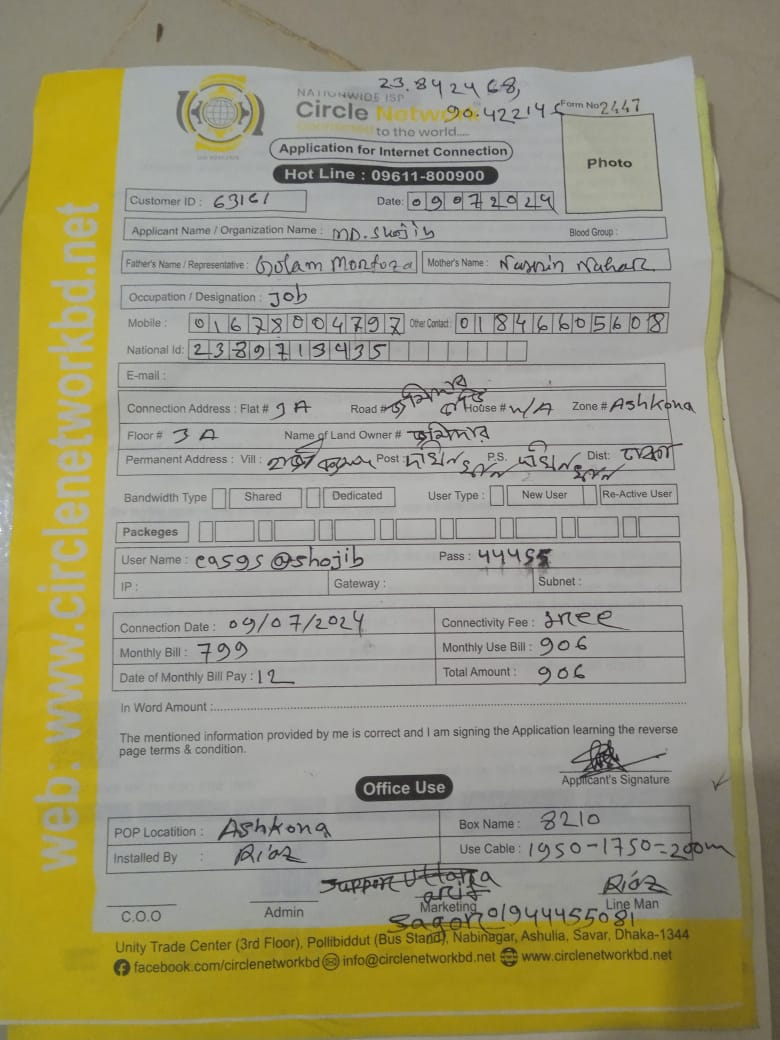 23.842468,
NATIONWIDE ISP
90.42214
Circle Network
Form No 2447
Connected to the world....
Application for Internet Connection
Photo
Hot Line : 09611-800900
Customer ID : 63161
Date: 09072024
Applicant Name / Organization Name : MD. Shojib
Blood Group :
Father's Name / Representative : Golam Mortoza
Mother's Name : Nasrin Nahar
Occupation / Designation : Job
Mobile : 01678004797
Other Contact : 01846605608
National Id: 2389713435
E-mail :
Connection Address : Flat # 3A
Road # জমিদার
House # N/A
Zone # Ashkona
Floor # 3A
Name of Land Owner # জমিদার
Permanent Address : Vill :
Post :
P.S.
Dist: ঢাকা
Bandwidth Type
Shared
Dedicated
User Type :
New User
Re-Active User
Packeges
User Name : easgs@shojib
Pass :
IP :
Gateway :
Subnet :
Connection Date : 09/07/2024
Connectivity Fee : free
Monthly Bill : 799
Monthly Use Bill : 906
Date of Monthly Bill Pay : 12
Total Amount : 906
In Word Amount :
The mentioned information provided by me is correct and I am signing the Application learning the reverse
page terms & condition.
Applicant's Signature
Office Use
POP Locatition : Ashkona
Box Name : 8210
Installed By : Riaz
Use Cable : 1950-1750=200m
Support Uttara
arif
Riaz
C.O.O
Admin
Marketing
Line Man
Sagor 01944455081
Unity Trade Center (3rd Floor), Pollibiddut (Bus Stand), Nabinagar, Ashulia, Savar, Dhaka-1344
facebook.com/circlenetworkbd info@circlenetworkbd.net www.circlenetworkbd.net
web: www.circlenetworkbd.net